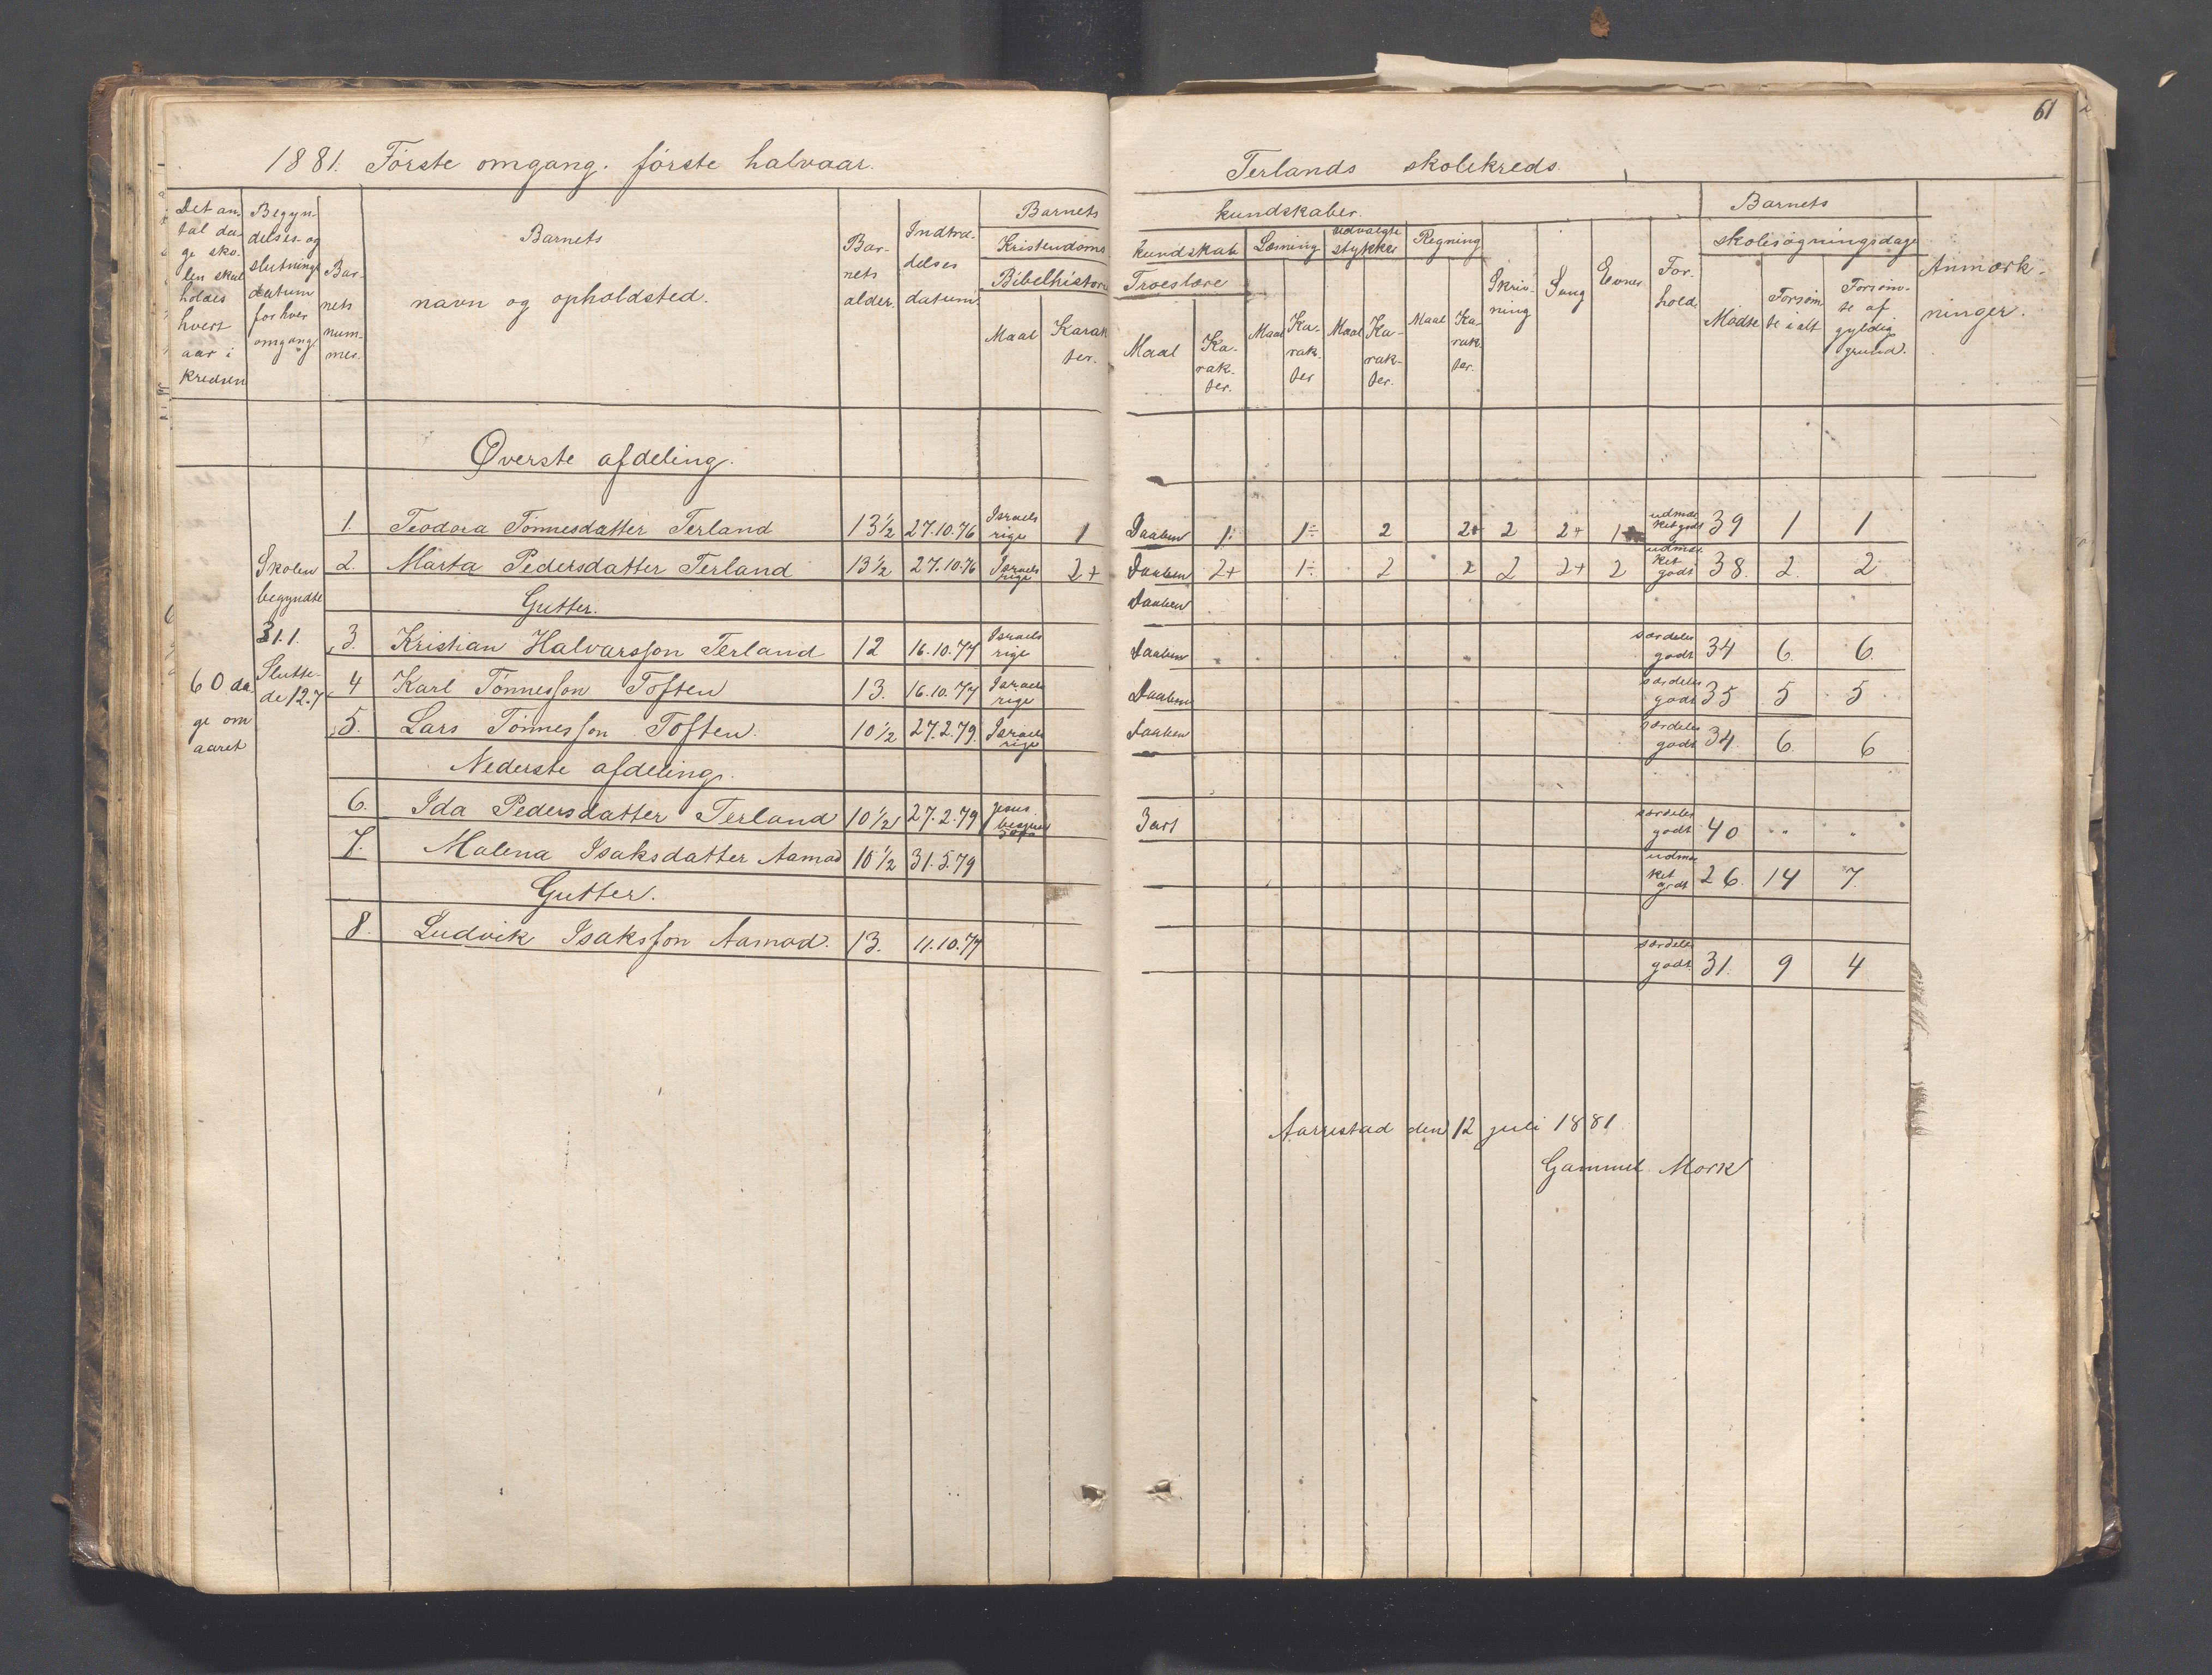 61
1881. Förste omgang. förste halvaar.
Terlands skolekreds.
Det an-
tal da-
ge sko-
len skal
holdes
hvert
aar i
kredsen
Begyn-
delses- og
slutnings
datum
for hver
omgang
Bar-
nets
num-
mer.
Barnets
navn og opholdsted.
Bar-
nets
alder.
Indtræ-
delses
datum.
Barnets
Kristendoms
Bibelhistorie
Maal
Karak
ter.
kundskaber.
kundskab
Troeslære
Maal
Ka-
rak-
ter.
Læsning
Maal
Ka-
rak-
ter
udvalgte
stykker
Maal
Ka-
rak-
ter.
Regning
Maal
Ka-
rak-
ter.
Skriv-
ning
Sang
Evner
For-
hold.
Barnets
skolesøgningsdage
Mødte
Forsøm
te i alt
Forsøm-
te af
gyldig
grund.
Anmærk-
ninger.
Øverste afdeling.
1. Teodora Tönnesdatter Terland 13½ 27.10.76 Israels rige 1 Daaben 1÷ 1÷ 2 2+ 2 2+ 1 udmær ket godt 39 1 1
2. Marta Pedersdatter Terland 13½ 27.10.76 Israels rige 2+ Daaben 2+ 1÷ 2 2 2 2+ 2 udmær ket godt 38. 2. 2
Gutter. Daaben
3. Kristian Halvarsson Terland 12 16.10.77 Israels rige Daaben særdeles godt 34 6. 6.
4 Karl Tönnesson Toften 13. 16.10.77 Israels rige Daaben særdeles godt 35 5 5
5. Lars Tönnesson Toften. 10½ 27.2.79. Israels rige Daaben særdeles godt 34. 6. 6
Skolen
begyndte
31.1.
Slutte-
de 12.7
60 da
ge om
aaret
Nederste afdeling.
6. Ida Pedersdatter Terland 10½ 27.2.79 Jesus 3 art særdeles godt 40 " "
7. Malena Isaksdatter Aamod 10½ 31.5.79 udmær ket godt 26. 14 7.
Gutter.
8. Ludvik Isaksson Aamod. 13. 11.10.77 særdeles godt 31. 9 4
Aarrestad den 12 juli 1881
Gammel Mork